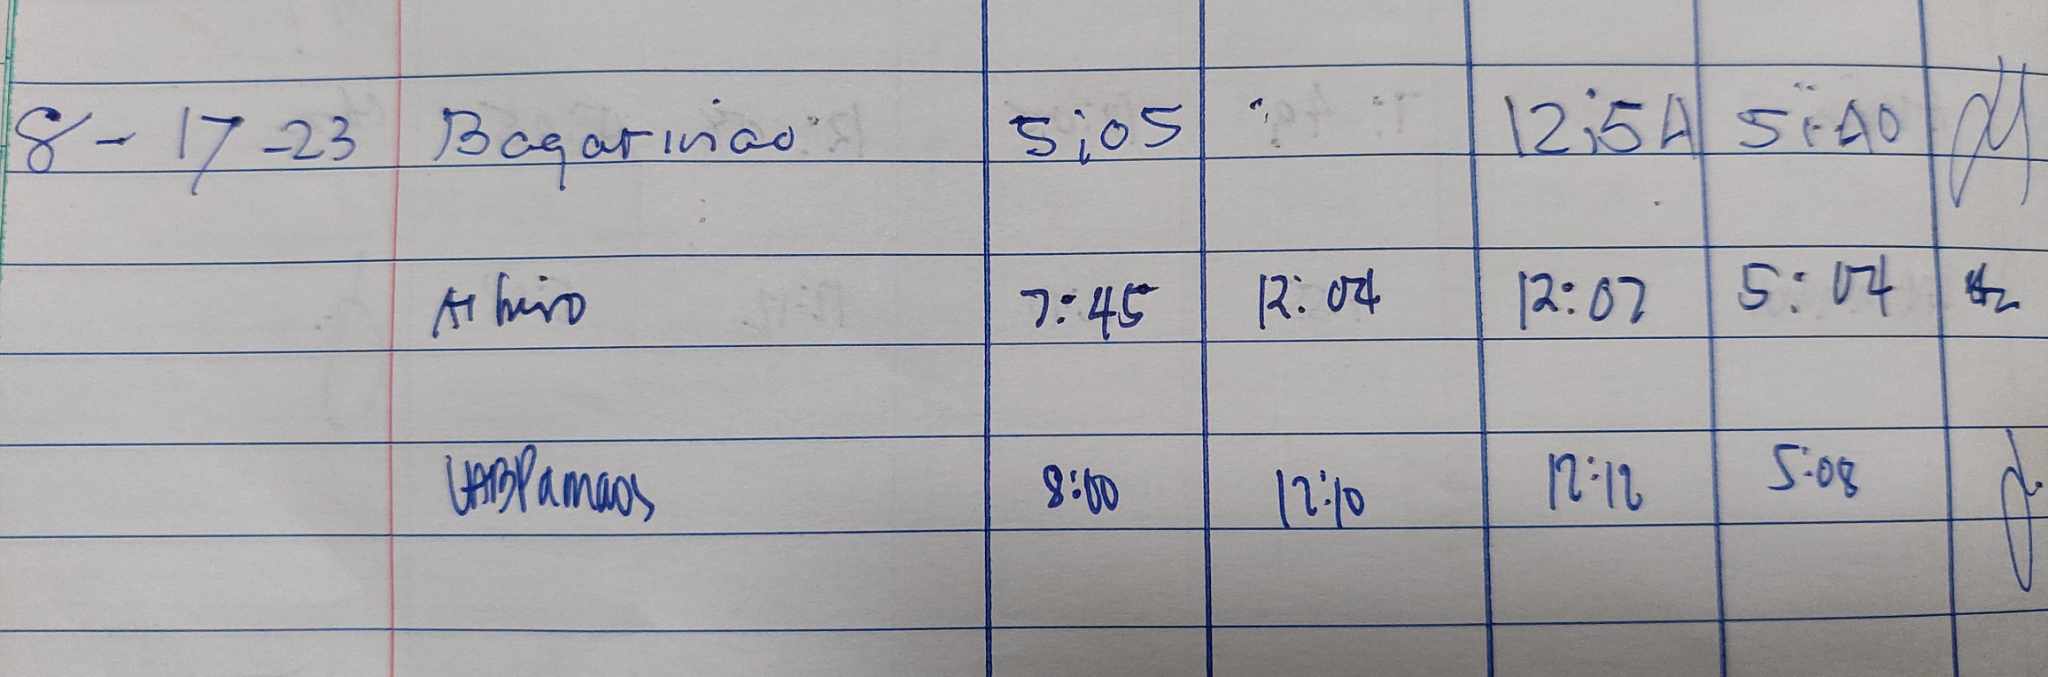 8-17-23 Bagarinao 5:05 12:54 5:40
Albiro 7:45 12:04 12:07 5:04
8:00 12:10 12:12 5:08